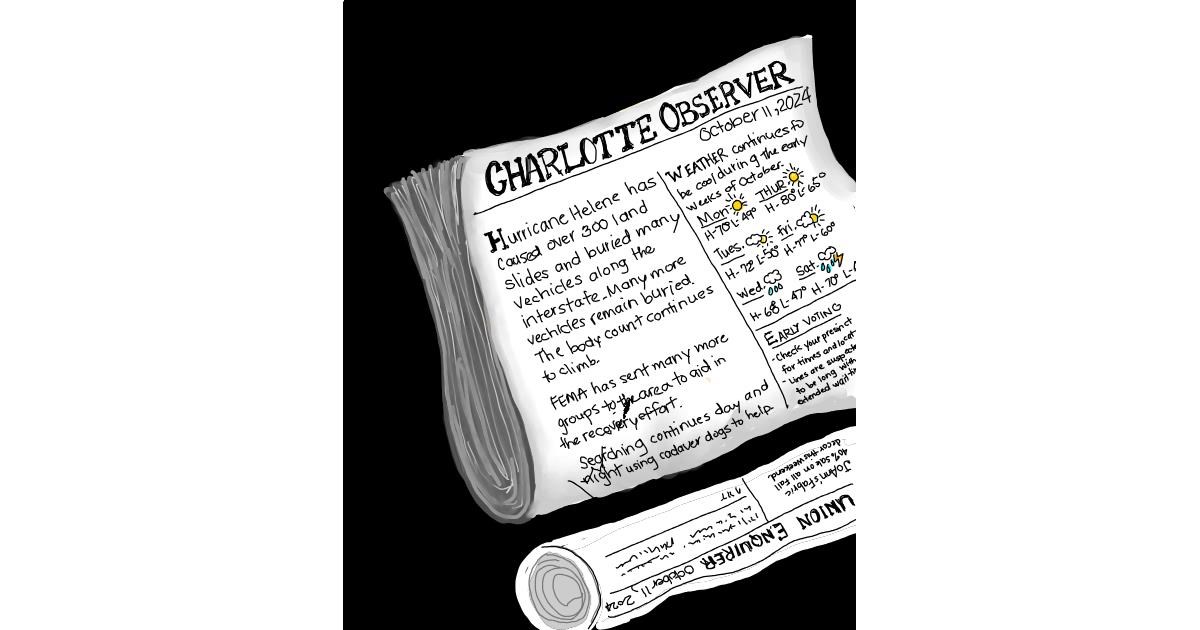 CHARLOTTE OBSERVER
October 11, 2024
Hurricane Helene has
caused over 300 land
slides and buried many
vechicles along the
interstate. Many more
vechicles remain buried.
The body count continues
to climb.
FEMA has sent many more
groups to the area to aid in
the recovery effort.
Searching continues day and
night using cadaver dogs to help
WEATHER continues to
be cool during the early
weeks of October.
Mon
H-70° L-49°
THUR
H-80° L-65°
Tues.
H-72 L-50°
Fri.
H-77° L-60°
Wed.
H-68 L-47°
Sat.
H-70° L-
EARLY VOTING
- Check your precinct
for times and locat
- Lines are suspecte
to be long with
extended wait
UNION ENQUIRER October 11, 2024
JoAnn's Fabric
40% sale on all Fall
decor this weekend.